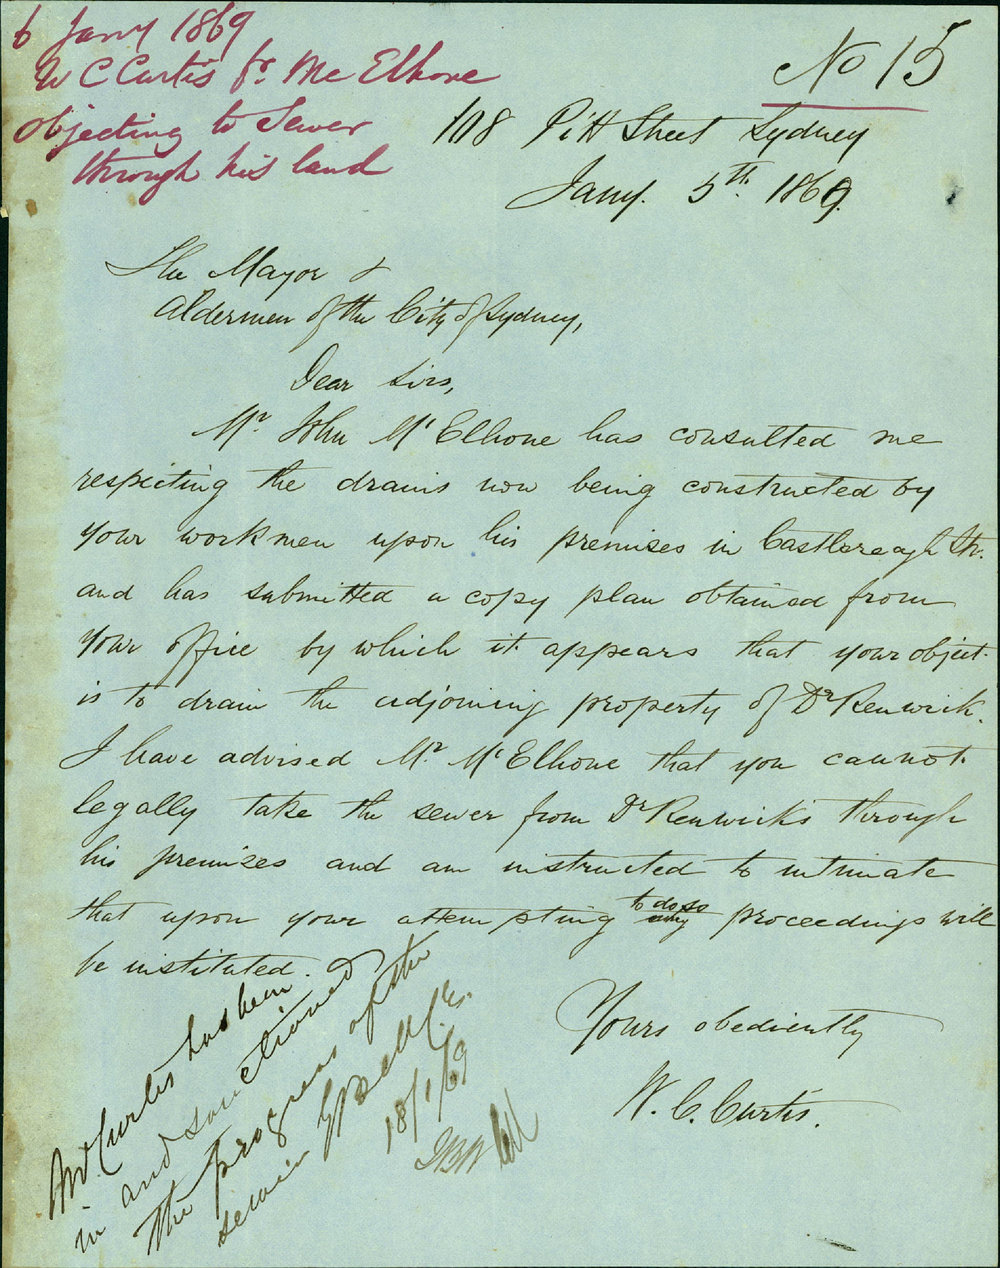 6 Jany 1869
W C Curtis fr. Mc Elhone
objecting to Sewer
through his land
No 15
108 Pitt Street Sydney
Jany. 5th. 1869.
The Mayor &
Aldermen of the City of Sydney,
Dear Sirs,
Mr. John McElhone has consulted me
respecting the drains now being constructed by
your workmen upon his premises in Castlereagh Str.
and has submitted a copy plan obtained from
your office by which it appears that your object
is to drain the adjoining property of Dr Renwick.
I have advised Mr. McElhone that you cannot
legally take the sewer from Dr Renwick's through
his premises and am instructed to intimate
that upon your attempting to do so proceedings will
be instituted.
Yours obediently
W. C. Curtis.
Mr. Curtis has been
in and sanctioned
the progress of the
sewer
18/1/69